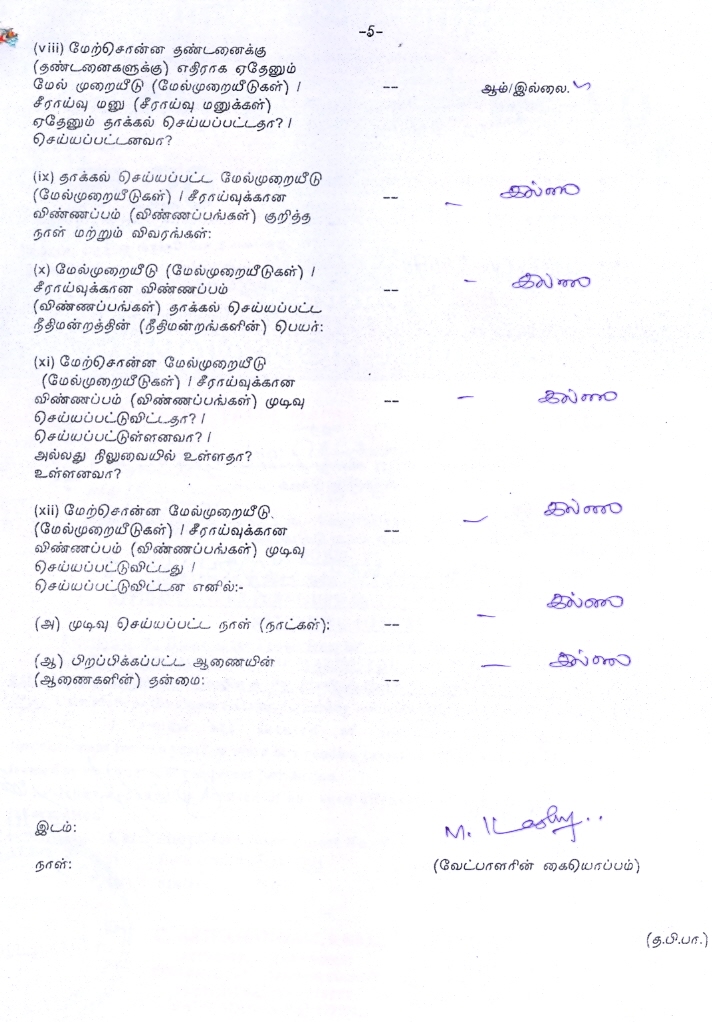 -5-
(viii) மேற்சொன்ன தண்டனைக்கு
(தண்டனைகளுக்கு) எதிராக ஏதேனும்
மேல் முறையீடு (மேல்முறையீடுகள்) / -- ஆம்/இல்லை.
சீராய்வு மனு (சீராய்வு மனுக்கள்)
ஏதேனும் தாக்கல் செய்யப்பட்டதா? /
செய்யப்பட்டனவா?
(ix) தாக்கல் செய்யப்பட்ட மேல்முறையீடு
(மேல்முறையீடுகள்) / சீராய்வுக்கான -- – இல்லை
விண்ணப்பம் (விண்ணப்பங்கள்) குறித்த
நாள் மற்றும் விவரங்கள்:
(x) மேல்முறையீடு (மேல்முறையீடுகள்) /
சீராய்வுக்கான விண்ணப்பம் -- – இல்லை
(விண்ணப்பங்கள்) தாக்கல் செய்யப்பட்ட
நீதிமன்றத்தின் (நீதிமன்றங்களின்) பெயர்:
(xi) மேற்சொன்ன மேல்முறையீடு
(மேல்முறையீடுகள்) / சீராய்வுக்கான
விண்ணப்பம் (விண்ணப்பங்கள்) முடிவு -- – இல்லை
செய்யப்பட்டுவிட்டதா? /
செய்யப்பட்டுள்ளனவா? /
அல்லது நிலுவையில் உள்ளதா?
உள்ளனவா?
(xii) மேற்சொன்ன மேல்முறையீடு
(மேல்முறையீடுகள்) / சீராய்வுக்கான -- – இல்லை
விண்ணப்பம் (விண்ணப்பங்கள்) முடிவு
செய்யப்பட்டுவிட்டது /
செய்யப்பட்டுவிட்டன எனில்:-
(அ) முடிவு செய்யப்பட்ட நாள் (நாட்கள்): -- – இல்லை
(ஆ) பிறப்பிக்கப்பட்ட ஆணையின் – இல்லை
(ஆணைகளின்) தன்மை: --
இடம்:
M.
நாள்: (வேட்பாளரின் கையொப்பம்)
(த.பி.பா.)